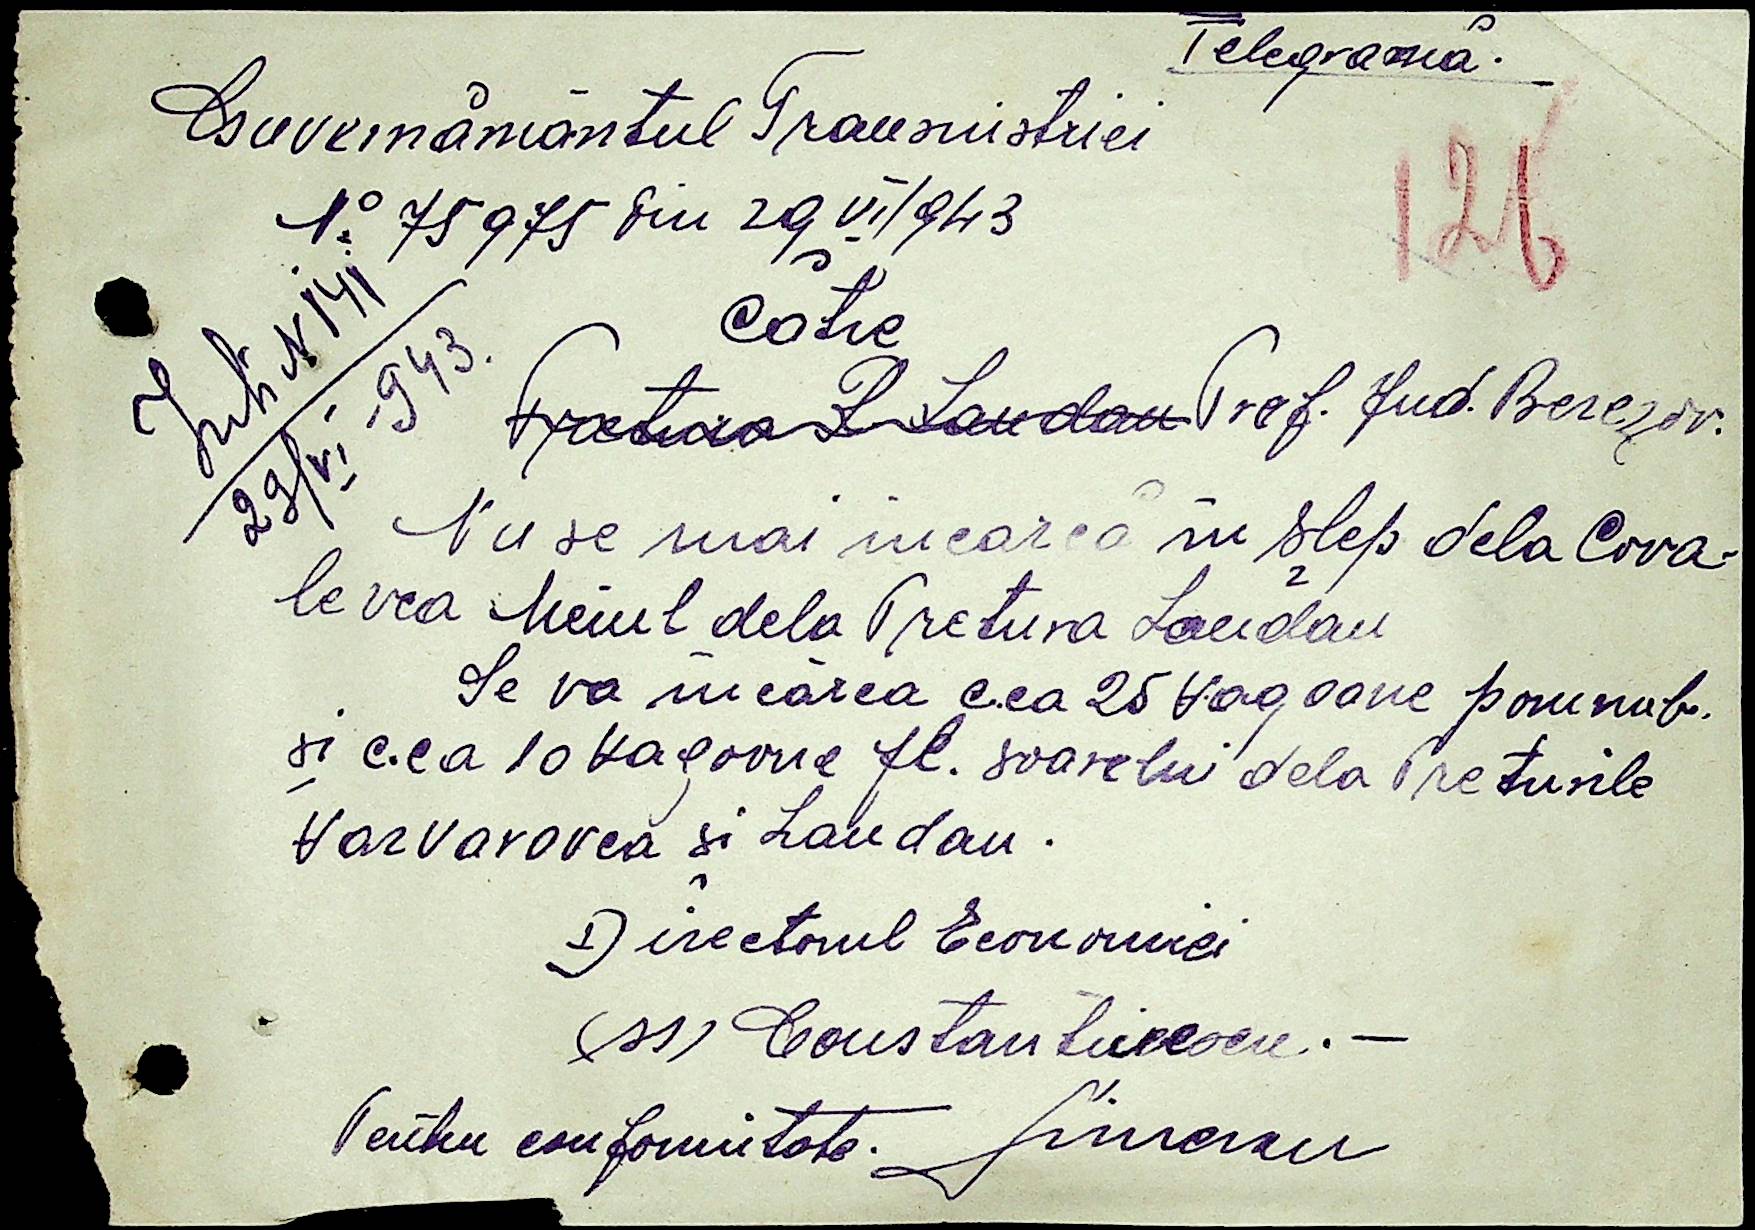 Telegramă.
Guvernământul Transnistriei
126
No 75975 din 29 VI/943
Către
Intr. N 141
29/VI 943.
Pretura R Landau Pref. Jud. Berezov.
Nu se mai încarcă în șlep dela Cova-
levca Meiul dela Pretura Landau
Se va încărca c.ca 25 Vagoane porumb.
și c.ca 10 Vagoane fl. soarelui dela Preturile
Varvarovca și Landau.
Directorul Economiei
(ss) Constantinescu. —
Pentru conformitate.